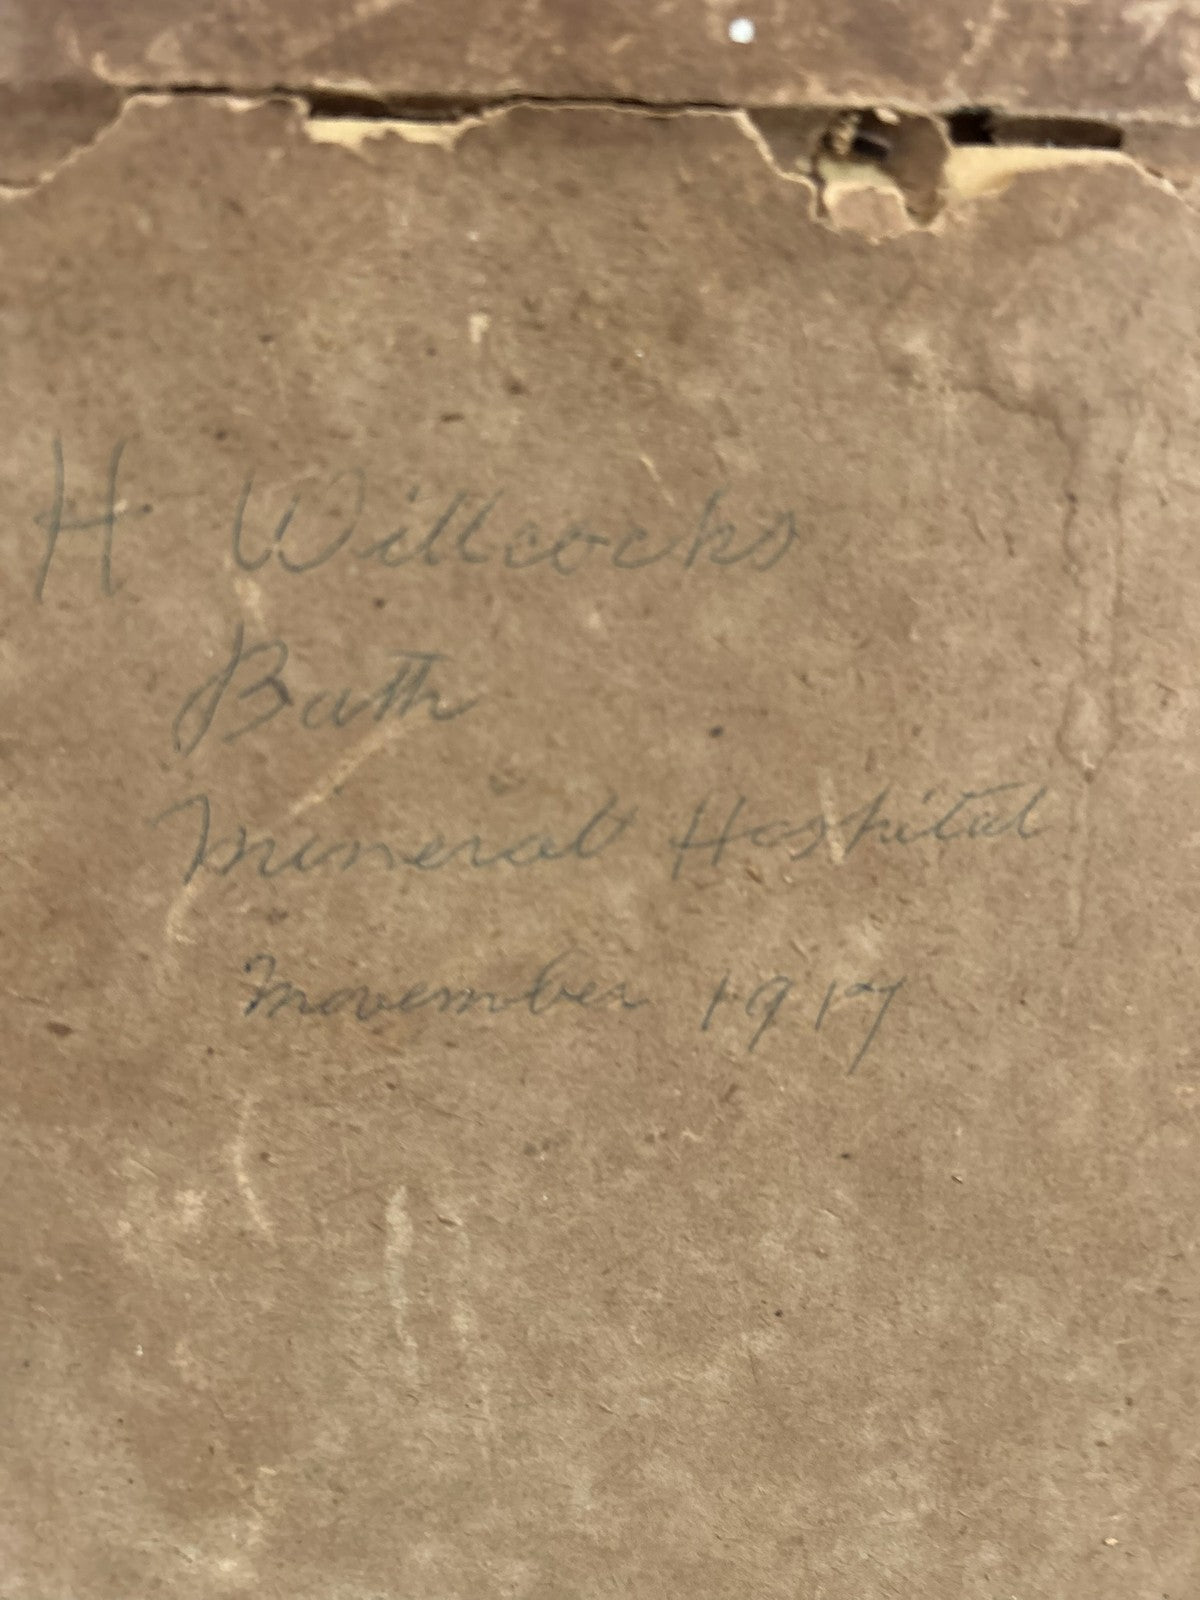 H Willcocks
Bath
Mineral Hospital
November 1917